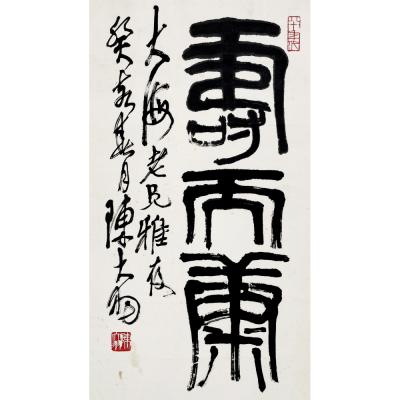 壽而康
大海老兄雅存
癸亥春月陳大羽